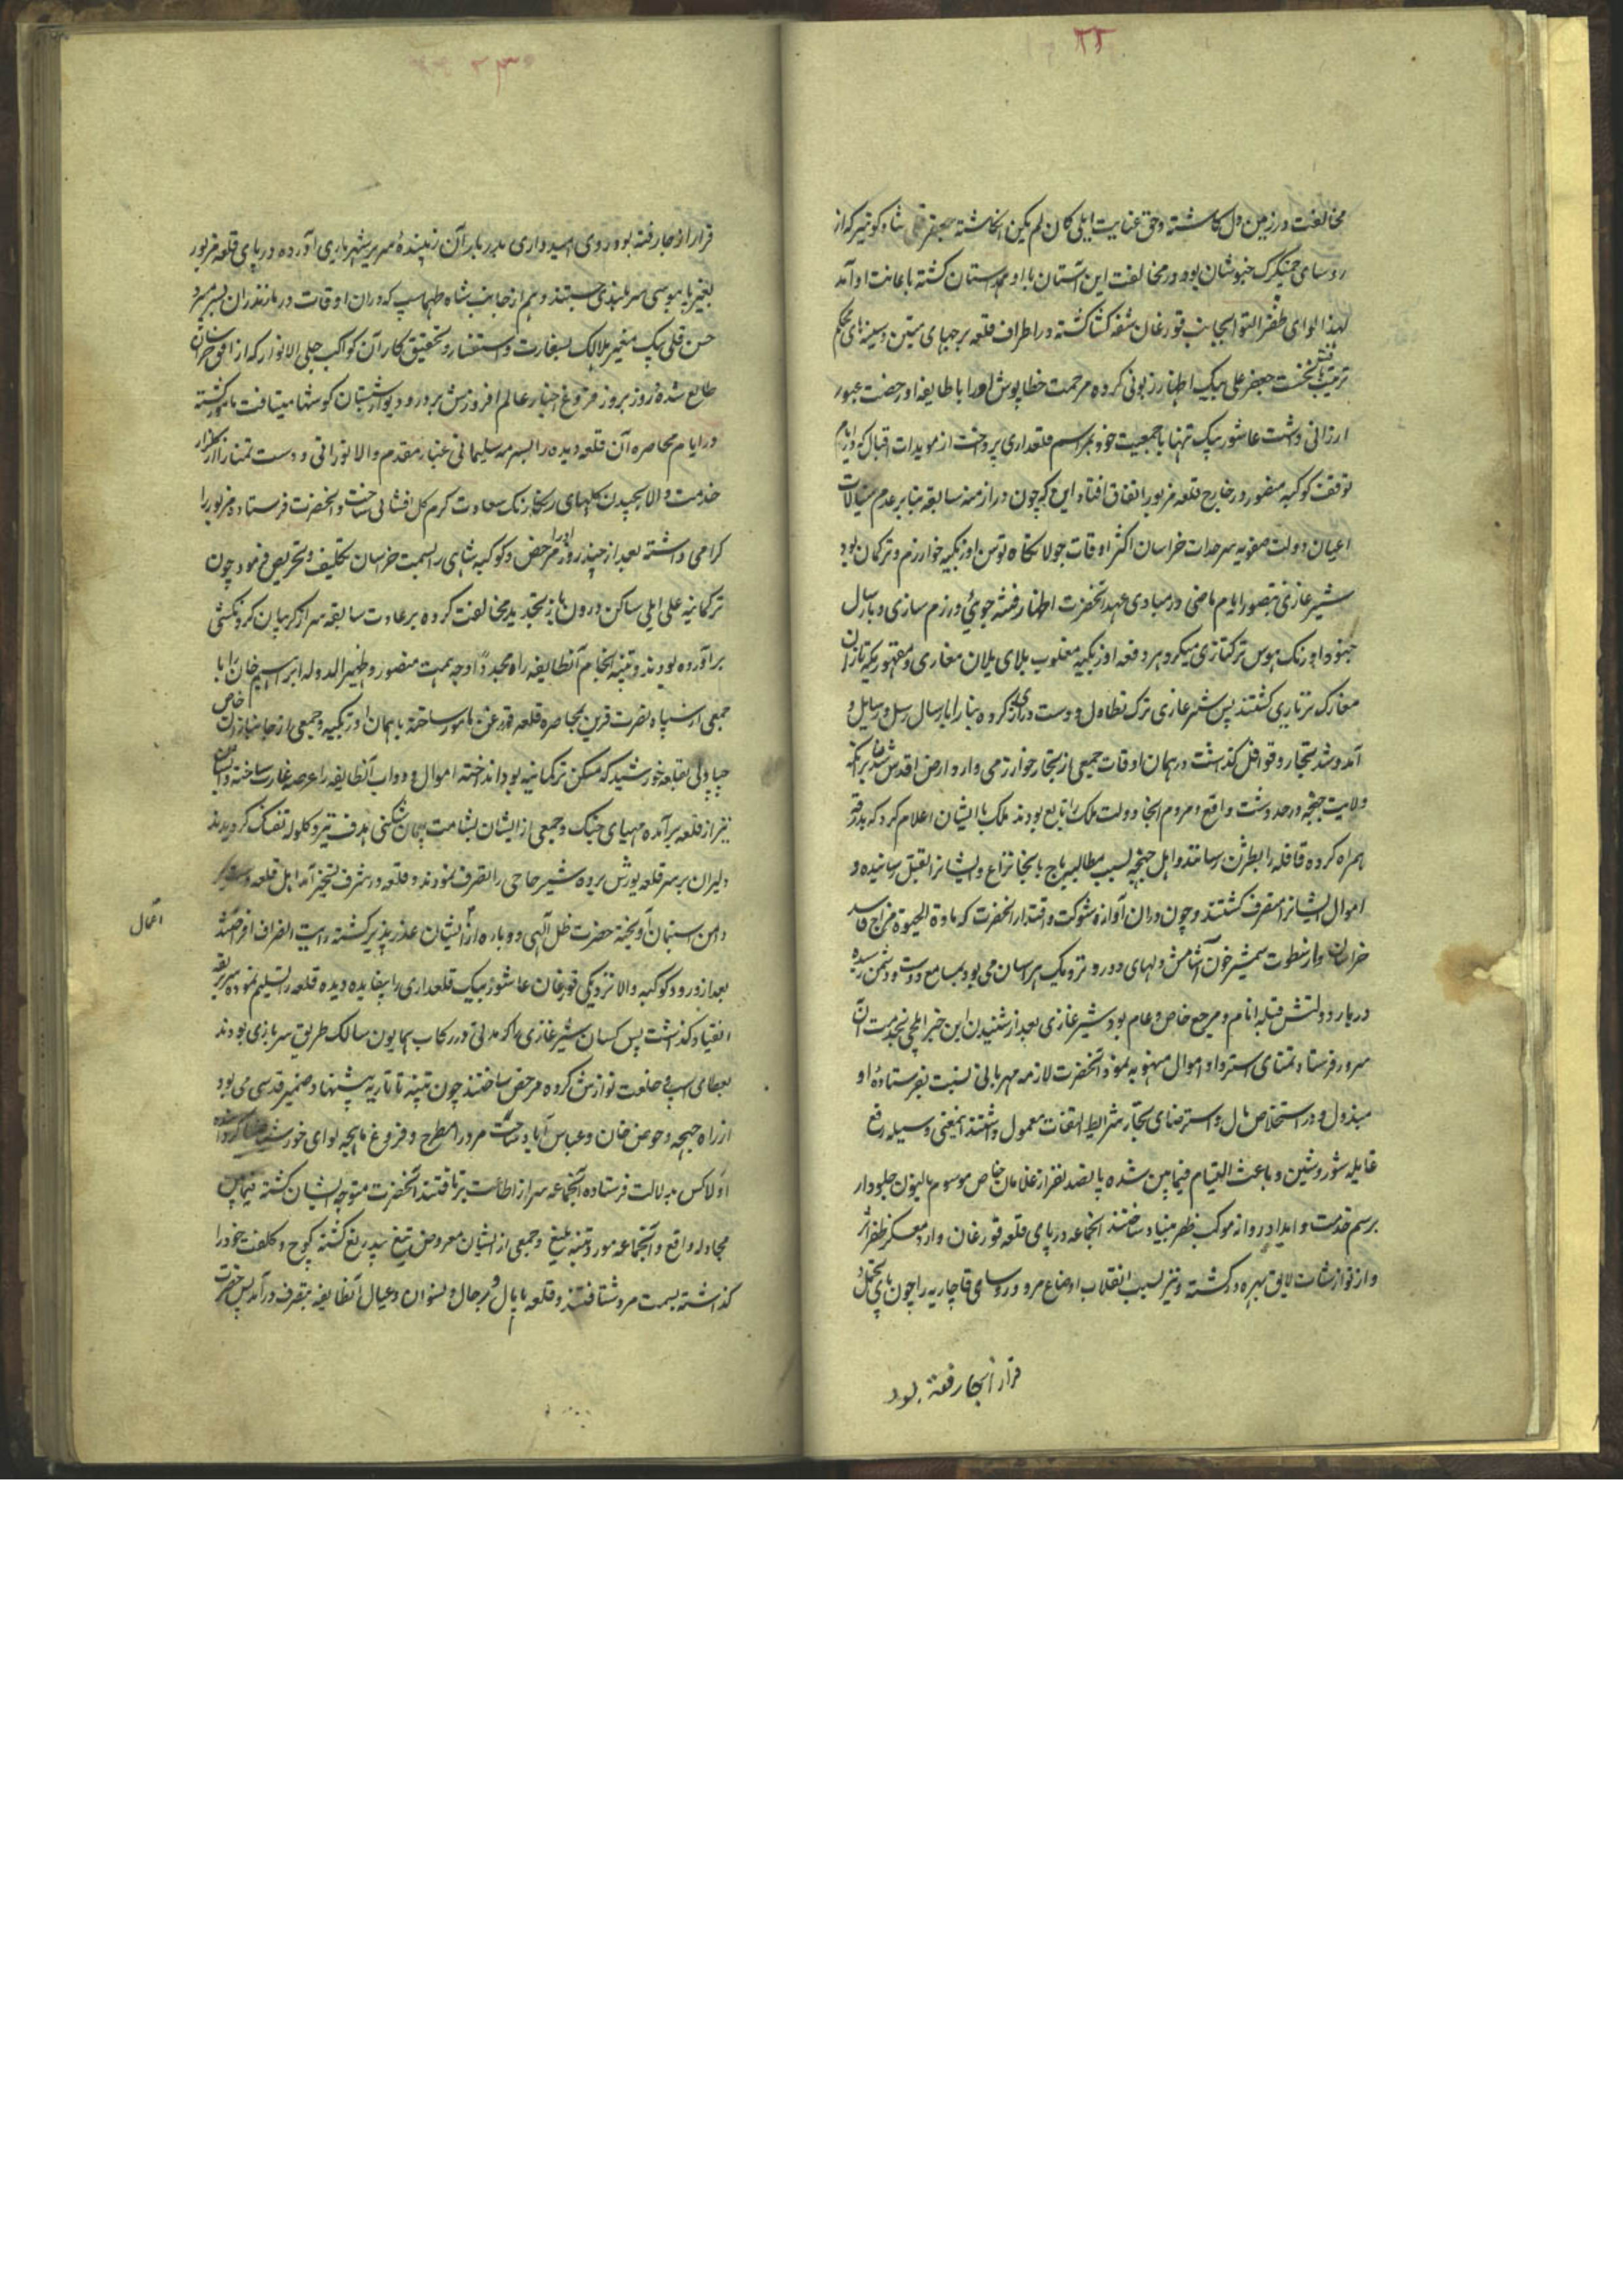 ۲۲
مخالفت در زمین دل کاشته و حق عنایت ایلی کان لم یکن انگاشته جعفر قلی شادکو نیز که از
روسای چمشکزک خبوشان بود در مخالفت این آستان با او همدستان گشته باعانت او آمد
لهذا لوای ظفر التوا بجانب قورغان شقه گشا گشته در اطراف قلعه برجهای متین و سیبه‌های محکم
ترتیب یافت نخست جعفر علی بیک اظهار زبونی کرده مرحمت خطاپوش او را با طایفه او رخصت عبور
ارزانی داشت عاشور بیک تنها با جمعیت خود بمراسم قلعداری پرداخت از مویدات اقبال که در ایام
توقف کوکبه منصور در خارج قلعه مزبور اتفاق افتاد این که چون در ازمنه سابقه بنابر عدم مبالات
اعیان دولت صفویه سرحدات خراسان اکثر اوقات جولانگاه توسن اوزبکیه خوارزم و ترکمان بود
شیر غازی بتصور ایام ماضی در مبادی عهد آنحضرت اظهار فتنه جوئی و رزم سازی و بارسال
جنود اورنک هوس ترکتازی میکرد هر دفعه اوزبکیه مغلوب بلای یلان مغازی و مقهور یکه تازان
معارک تر تازی گشتند پس شیر غازی ترک تطاول و دست درازی کرده بنا را بارسال رسل و رسایل و
آمد و شد تجار و قوافل گذاشت در همان اوقات جمعی از تجار خوارزمی وارد ارض اقدس شدند
ولایت جهجه در حد دشت واقع و مردم آنجا دولت ملک را تابع بودند ملک با ایشان اعلام کرد که بدرقه
همراه کرده قافله را بطژن رسانند و اهل جهجه بسبب مطالبه باج با تجار نزاع و ایشان را بقتل رسانیده و
اموال ایشان را متصرف گشتند و چون در آن آوازه شوکت و اقتدار آنحضرت که مادة الحیوة مزاج فاسد
خراسان و از سطوت شمشیر خون آشامش دلهای دور و نزدیک هراسان می بود بمسامع دوست و دشمن رسیده
دربار دولتش قبله انام و مرجع خاص و عام بود شیر غازی بعد از شنیدن این خبر ایلچی بخدمت آن
سرور فرستاد تمنای استرداد اموال منهوبه نمود آنحضرت لازمه مهربانی نسبت بفرستاده او
مبذول و در استخلاص مال و استرضای تجار شرایط التفات معمول داشتند اینمعنی وسیله رفع
غایله شور و شین و باعث التیام فیمابین شده پانصد نفر از غلامان خاص موسوم بالیون جلودار
برسم خدمت و امداد روانه موکب ظفر بنیاد ساختند آنجماعه در پای قلعه قورغان وارد معسکر ظفر اثر
و از نوازشات لایق بهره ور گشته و نیز بسبب انقلاب اوضاع مرو روسای قاجاریه را چون پای تحمل
قرار از جا رفته بود
۲۳
قرار از جا رفته بود روی امیدواری بدربار آن زیبندهٔ سریر شهریاری آورده در پای قلعه مزبور
بتقبیل پابوسی سربلندی جستند و هم از جانب شاه طهماسب که در آن اوقات در مازندران بسر میبرد
حسن قلی بیک معیر الممالک بسفارت و استفسار و تحقیق کار آن کواکب جلی الانوار که از افق خراسان
طالع شده روز بروز فروغ اخبار عالم افروزش بر در و دیوار شبستان گوشها میتافت مامور گشته
در ایام محاصره آن قلعه دیده را بسرمه سلیمانی غبار مقدم والا نورانی و دست تمنا را از گلزار
خدمت والا بچیدن گلهای رنگارنگ سعادت کرم گل افشانی ساخت و آنحضرت فرستاده مزبور را
گرامی داشته بعد از چند روز او را مرخص و کوکبه شاهی را بسمت خراسان تکلیف و تحریص فرمود چون
ترکمانیه علی ایلی ساکن درون باز تجدید مخالفت کرده بر عادت سابقه سر از گریبان گردنکشی
برآورده بودند و تنبه انجام آنطایفه راه مجدداً وجه همت منصور و ظهیر الدوله ابراهیم خان را با
جمعی از سپاه نصرت قرین بمحاصره قلعه قورغان مامور ساخته با همان اوزبکیه و جمعی از جانبازان خاص
چپاولی بقلعه خورشید که مسکن ترکمانیه بود انداخته اموال و دواب آنطایفه را عرصه غارت ساخته و آن
نیز از قلعه برآمده مهیای جنگ و جمعی از ایشان بشامت پیمان شکنی هدف تیر و گلوله تفنگ گردیدند
دلیران بر سر قلعه یورش برده شیر حاجی را بتصرف نمودند و قلعه در شرف تسخیر آمد اهل قلعه دست
دامن استیمان آویخته حضرت ظل الهی دوباره از ایشان عذر پذیر گشته رایت انصراف افراختند
بعد از ورود کوکبه والا نزدیکی قورغان عاشور بیک قلعداری را بیفایده دیده قلعه را تسلیم نموده سر بربقه
انقیاد گذاشت پس کسان شیر غازی را که مدتی در رکاب همایون سالک طریق سربازی بودند
بعطای اسب و خلعت نوازش کرده مرخص ساختند چون تنبیه تاتاریه پیشنهاد ضمیر قدسی می بود
از راه جهجه و حوض خان و عباس آباد ساحت مرو را مطرح و فروغ ماهچه لوای خورشید
اولا کس بدلالت فرستاده آنجماعه سر از اطاعت برتافتند آنحضرت متوجه ایشان گشته فیمابین
مجادله واقع و آنجماعه مورد تنبیه بلیغ و جمعی از ایشان معروض تیغ بیدریغ گشته کوچ و کلفت خود را
گذاشته بسمت مرو شتافتند و قلعه با مال و رجال و نسوان و عیال آنطایفه بتصرف درآمد پس حضرت